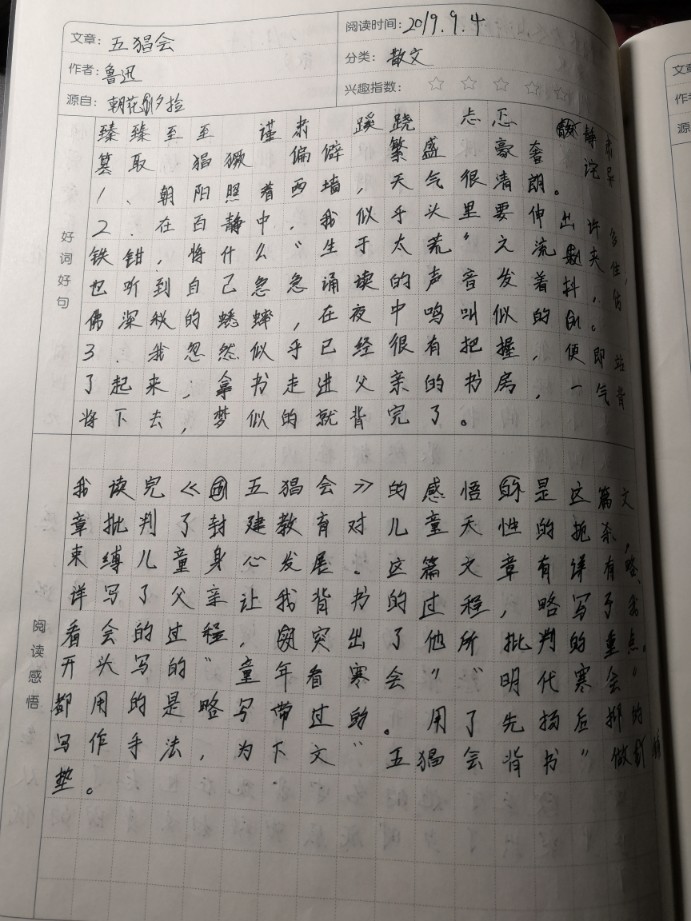 文章：五猖会
阅读时间：2019.9.4
作者：鲁迅
分类：散文
源自：朝花夕拾
兴趣指数：☆☆☆☆☆
好词好句
臻臻至至 谨肃 蹊跷 忐忑 静肃
箕取 猖獗 偏僻 繁盛 豪奢 诧异
1、朝阳照着西墙，天气很清朗。
2．在百静中，我似乎头里要伸出许多
铁钳，将什么“生于太荒”之流夹住，
也听到自己急急诵读的声音发着抖，仿
佛深秋的蟋蟀，在夜中鸣叫似的。
3．我忽然似乎已经很有把握，便即站
了起来，拿书走进父亲的书房，一气背
将下去，梦似的就背完了。
阅读感悟
我读完《五猖会》的感悟是这篇文
章批判了封建教育对儿童天性的扼杀，
束缚儿童身心发展．这篇文章有详有略，
详写了父亲让我背书的过程，略写了去
看会的过程，突出了他所批判的重点．
开头写的“童年看赛会”“明代赛会”
都用的是略写带过的。用了先扬后抑的
写作手法，为下文“五猖会背书”做铺
垫。
文
作
源